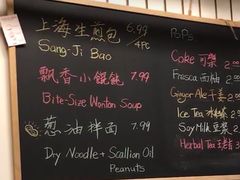 上海生煎包 6.99 / 4PC
Sang-Ji Bao
飄香小餛飩 7.99
Bite-Size Wonton Soup
葱油拌面 7.99
Dry Noodle + Scallion Oil
Peanuts
POPS
Coke 可樂 2
Fresca 西柚 2
Ginger Ale 干姜 2
Ice Tea 冰綠茶 2
Soy Milk 豆漿 2
Herbal Tea 王老吉